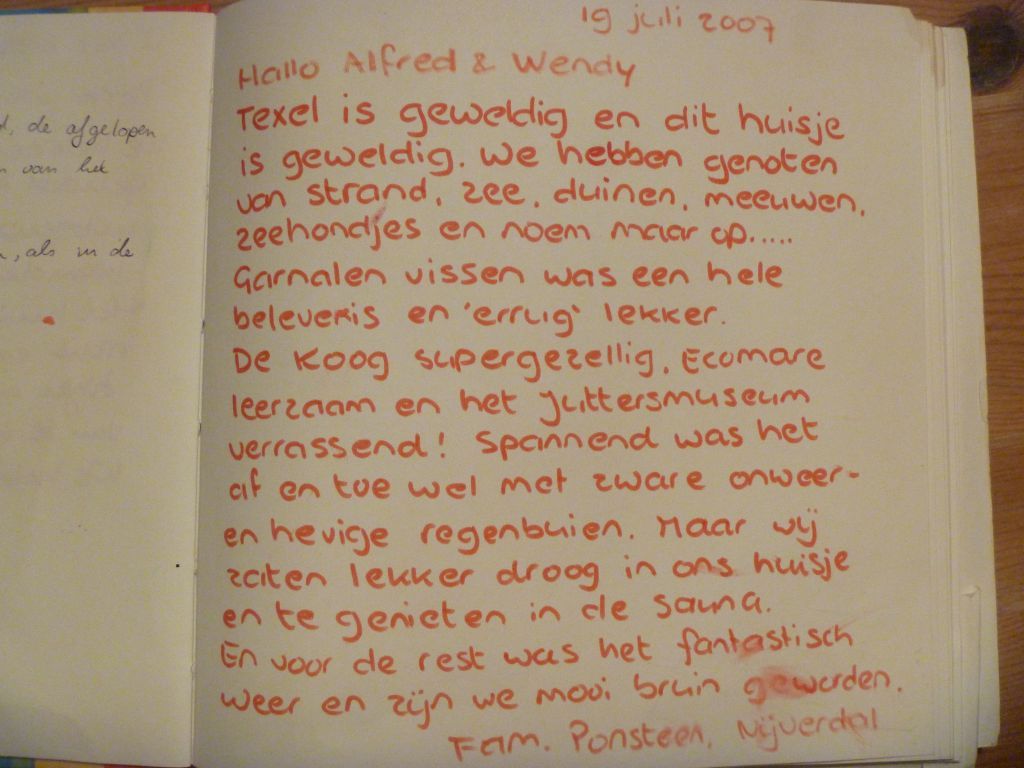 d, de afgelopen
n van het
n, als in de
19 juli 2007
Hallo Alfred & Wendy
Texel is geweldig en dit huisje
is geweldig. We hebben genoten
van strand, zee, duinen, meeuwen,
zeehondjes en noem maar op.....
Garnalen vissen was een hele
belevenis en 'errug' lekker.
De Koog supergezellig, Ecomare
leerzaam en het Juttersmuseum
verrassend! Spannend was het
af en toe wel met zware onweer-
en hevige regenbuien. Maar wij
zaten lekker droog in ons huisje
en te genieten in de sauna.
En voor de rest was het fantastisch
weer en zijn we mooi bruin geworden.
Fam. Ponsteen, Nijverdal